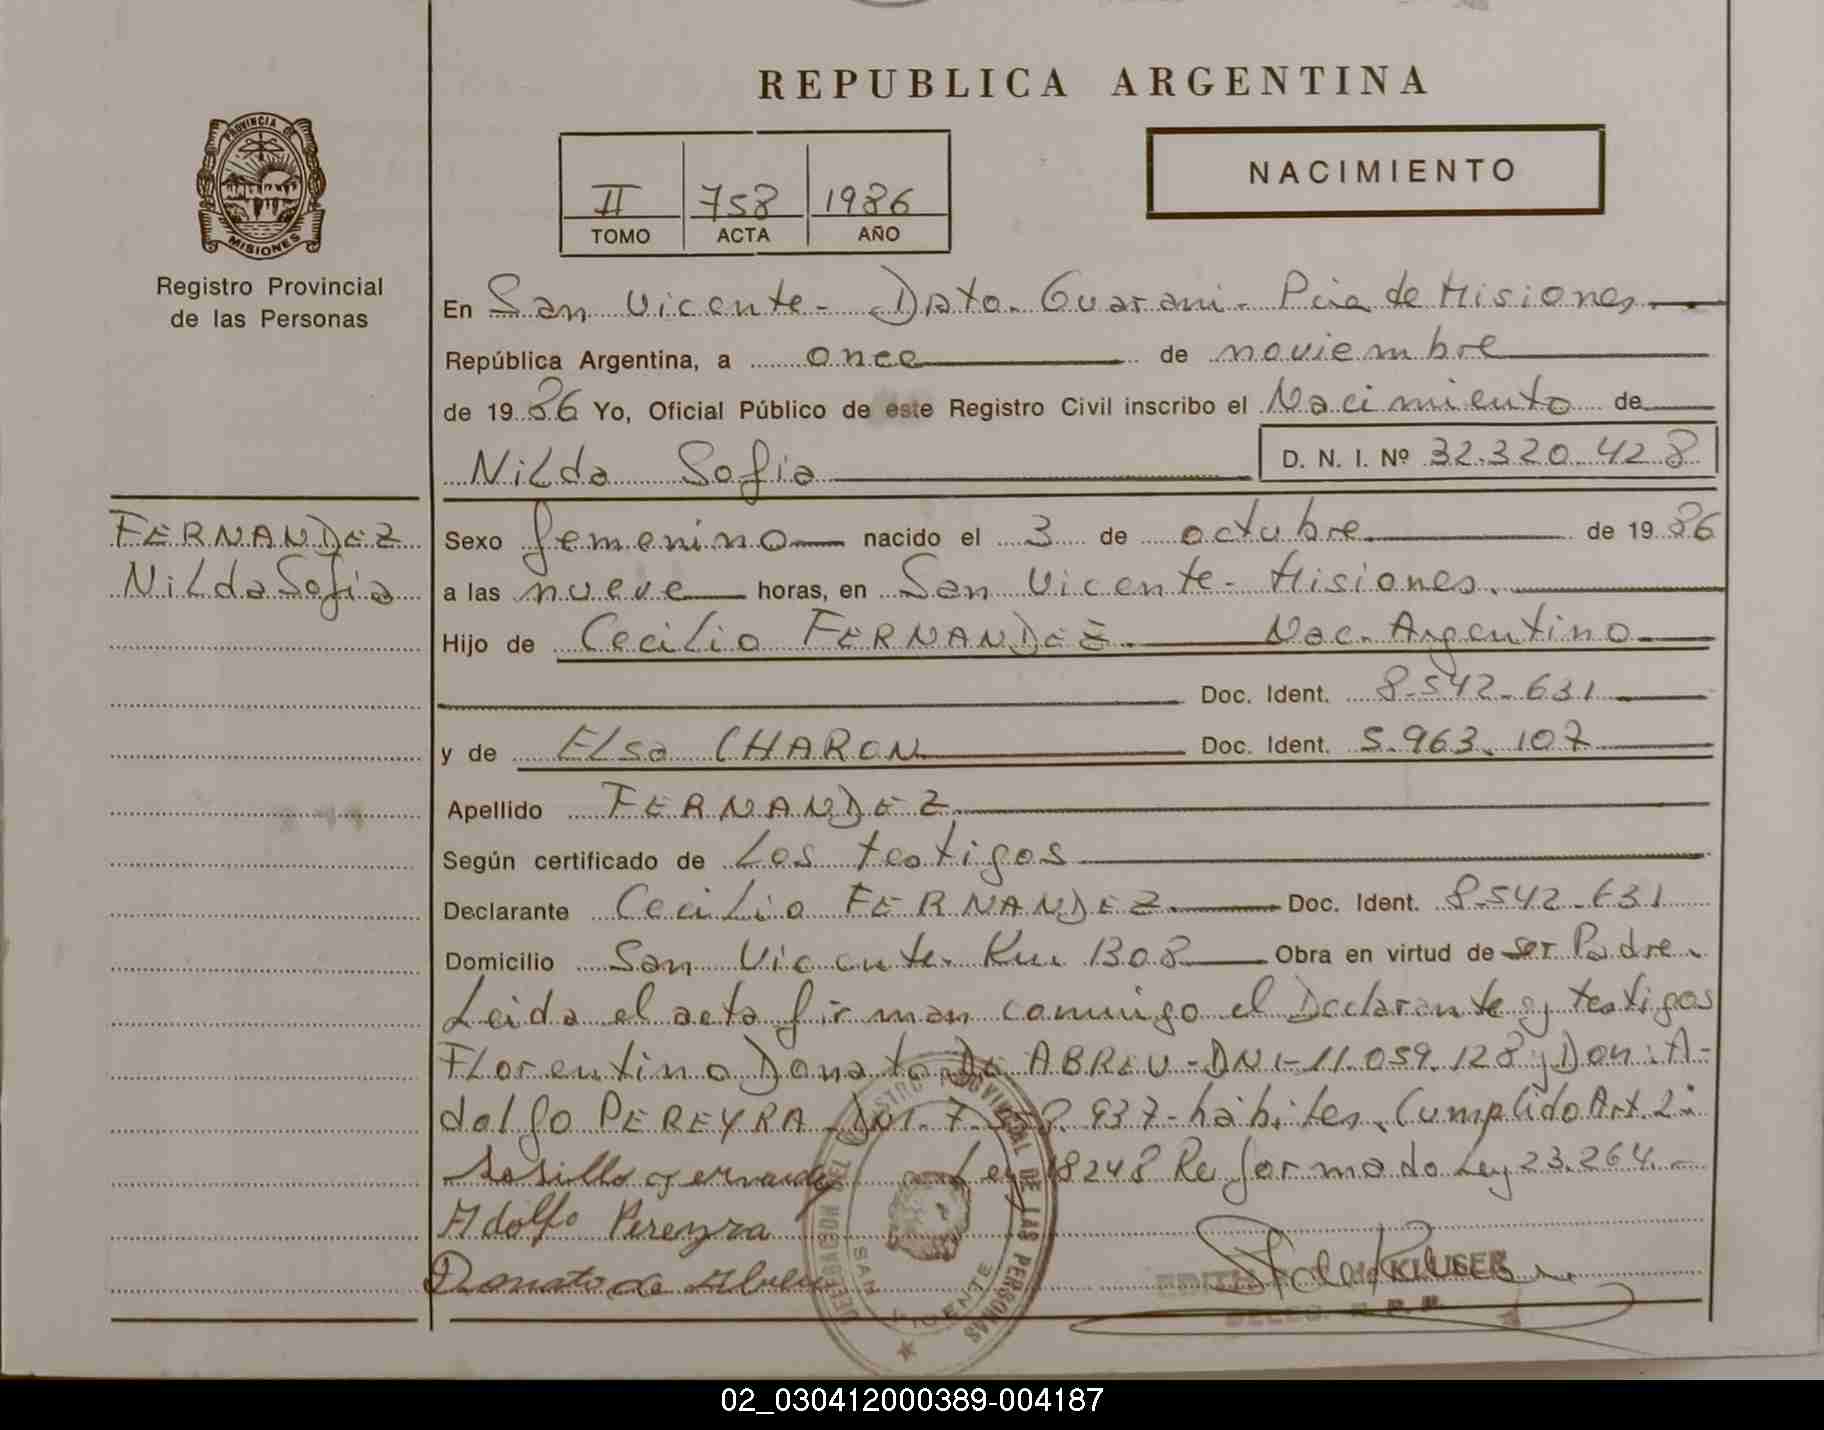 REPUBLICA ARGENTINA
PROVINCIA DE
MISIONES
Registro Provincial
de las Personas
II 758 1986
TOMO ACTA AÑO
NACIMIENTO
En San Vicente - Dpto. Guarani - Pcia de Misiones
República Argentina, a once de noviembre
de 1986 Yo, Oficial Público de este Registro Civil inscribo el Nacimiento de
Nilda Sofia D. N. I. Nº 32.320.428
FERNANDEZ
Nilda Sofia
Sexo femenino nacido el 3 de octubre de 1986
a las nueve horas, en San Vicente - Misiones.
Hijo de Cecilio FERNANDEZ. Nac. Argentino
Doc. Ident. 8.542.631
y de Elsa CHARON Doc. Ident. 5.963.107
Apellido FERNANDEZ
Según certificado de Los testigos
Declarante Cecilio FERNANDEZ Doc. Ident. 8.542.631
Domicilio San Vicente Km 1308 Obra en virtud de ser Padre.
Leida el acta firman conmigo el Declarante y testigos
Florentino Donato De ABREU - DNI - 11.059.128 y Don: A-
dolfo PEREYRA DNI. 7. 937 - hábiles. Cumplido Art. 2º
Ley 18248 Reformado Ley 23.264.-
Adolfo Pereyra
Donato de Abreu
DELEGACION DEL REGISTRO PROVINCIAL DE LAS PERSONAS
SAN VICENTE
KLUGER
02_030412000389-004187